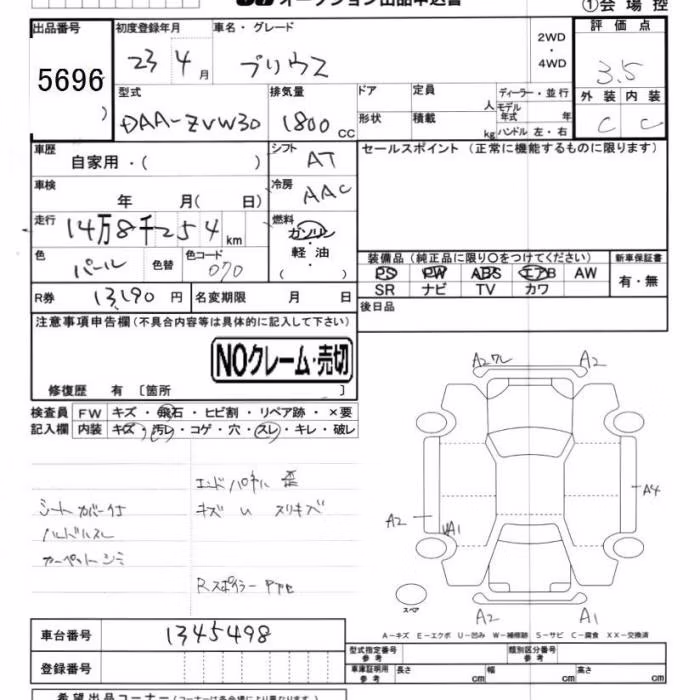 オークション出品申込書
①会場控
出品番号 初度登録年月 車名・グレード 2WD・4WD 評価点
5696 23 4月 プリウス 3.5
型式 排気量 ドア 定員 人 ディーラー・並行 外装 内装
DAA-ZVW30 1800 CC 形状 積載 kg モデル年式 年 ハンドル 左・右 C C
車歴 自家用・( ) シフト AT セールスポイント(正常に機能するものに限ります)
車検 年 月( 日) 冷房 AAC
走行 14万8千254km 燃料 ガソリン・軽油・( )
色 パール 色替 色コード 070 装備品(純正品に限り○をつけてください) 新車保証書
PS PW ABS エアB AW 有・無
SR ナビ TV カワ
R券 13,190円 名変期限 月 日 後日品
注意事項申告欄(不具合内容等は具体的に記入して下さい)
NOクレーム・売切
修復歴 有 〔箇所 〕
検査員 FW キズ・飛石・ヒビ割・リペア跡・×要
記入欄 内装 キズ・汚レ・コゲ・穴・スレ・キレ・破レ
エンドパネル 歪
シートカバー付 キズ U スリキズ
ハンドルスレ
カーペットシミ
Rスポイラー
A2 A2
A2 A1 A4
スペア A2 A1
A-キズ E-エクボ U-凹み W-補修跡 S-サビ C-腐食 XX-交換済
車台番号 1345498
型式指定番号 参考 類別区分番号 参考
登録番号 車庫証明用 参考 長さ cm 幅 cm 高さ cm
希望出品コーナー(コーナーは各会場により異なります)